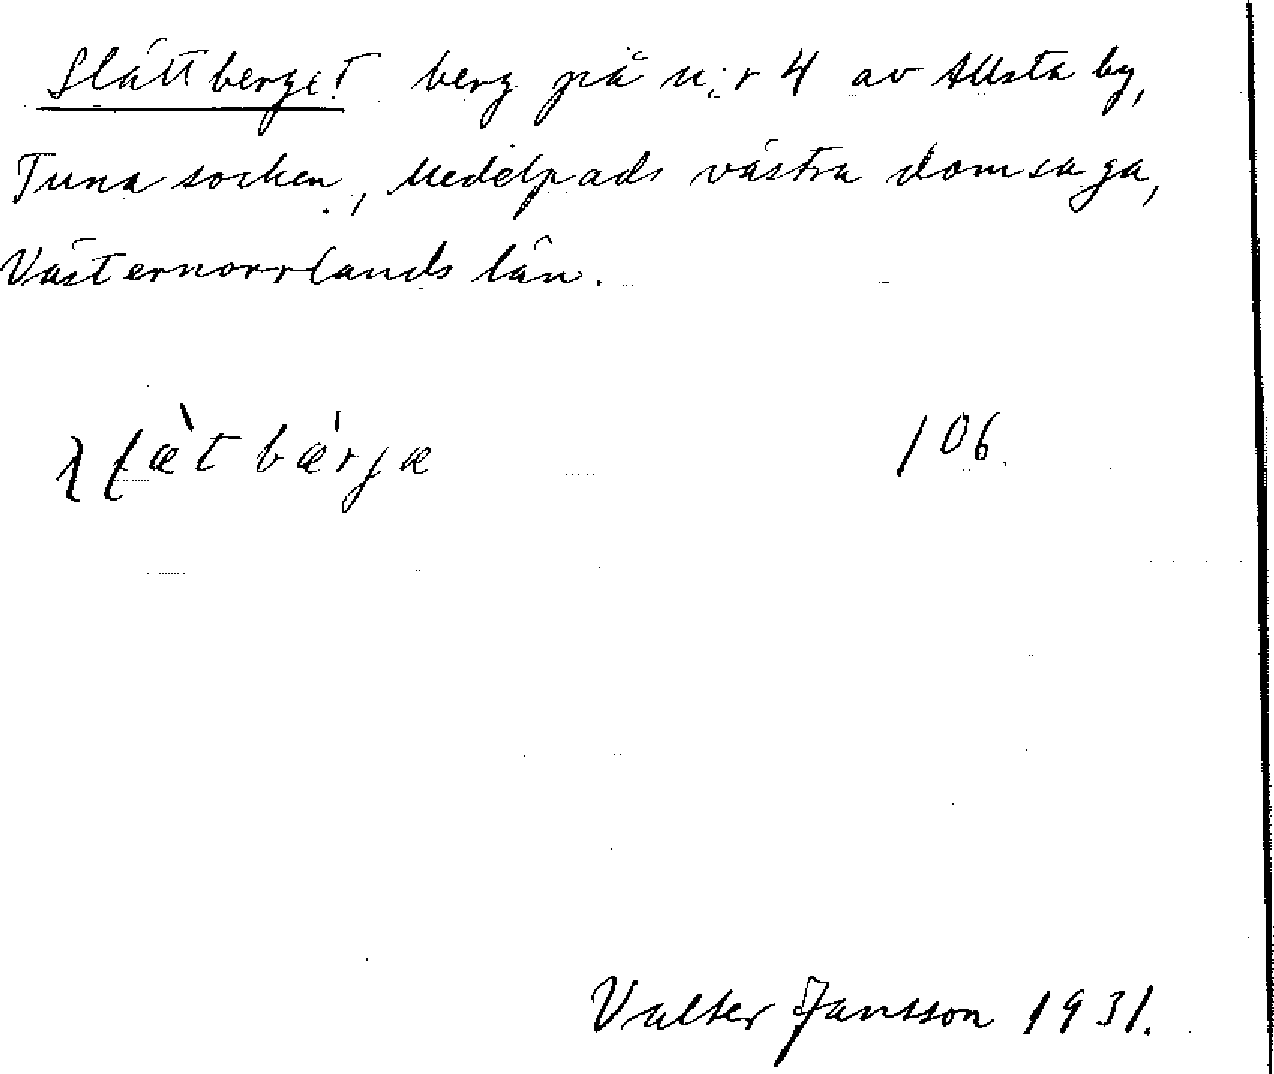 Slättberget berg på n:r 4 av Allsta by,
Tuna socken, Medelpads västra domsaga,
Västernorrlands län.
106
Valter Jansson 1931.